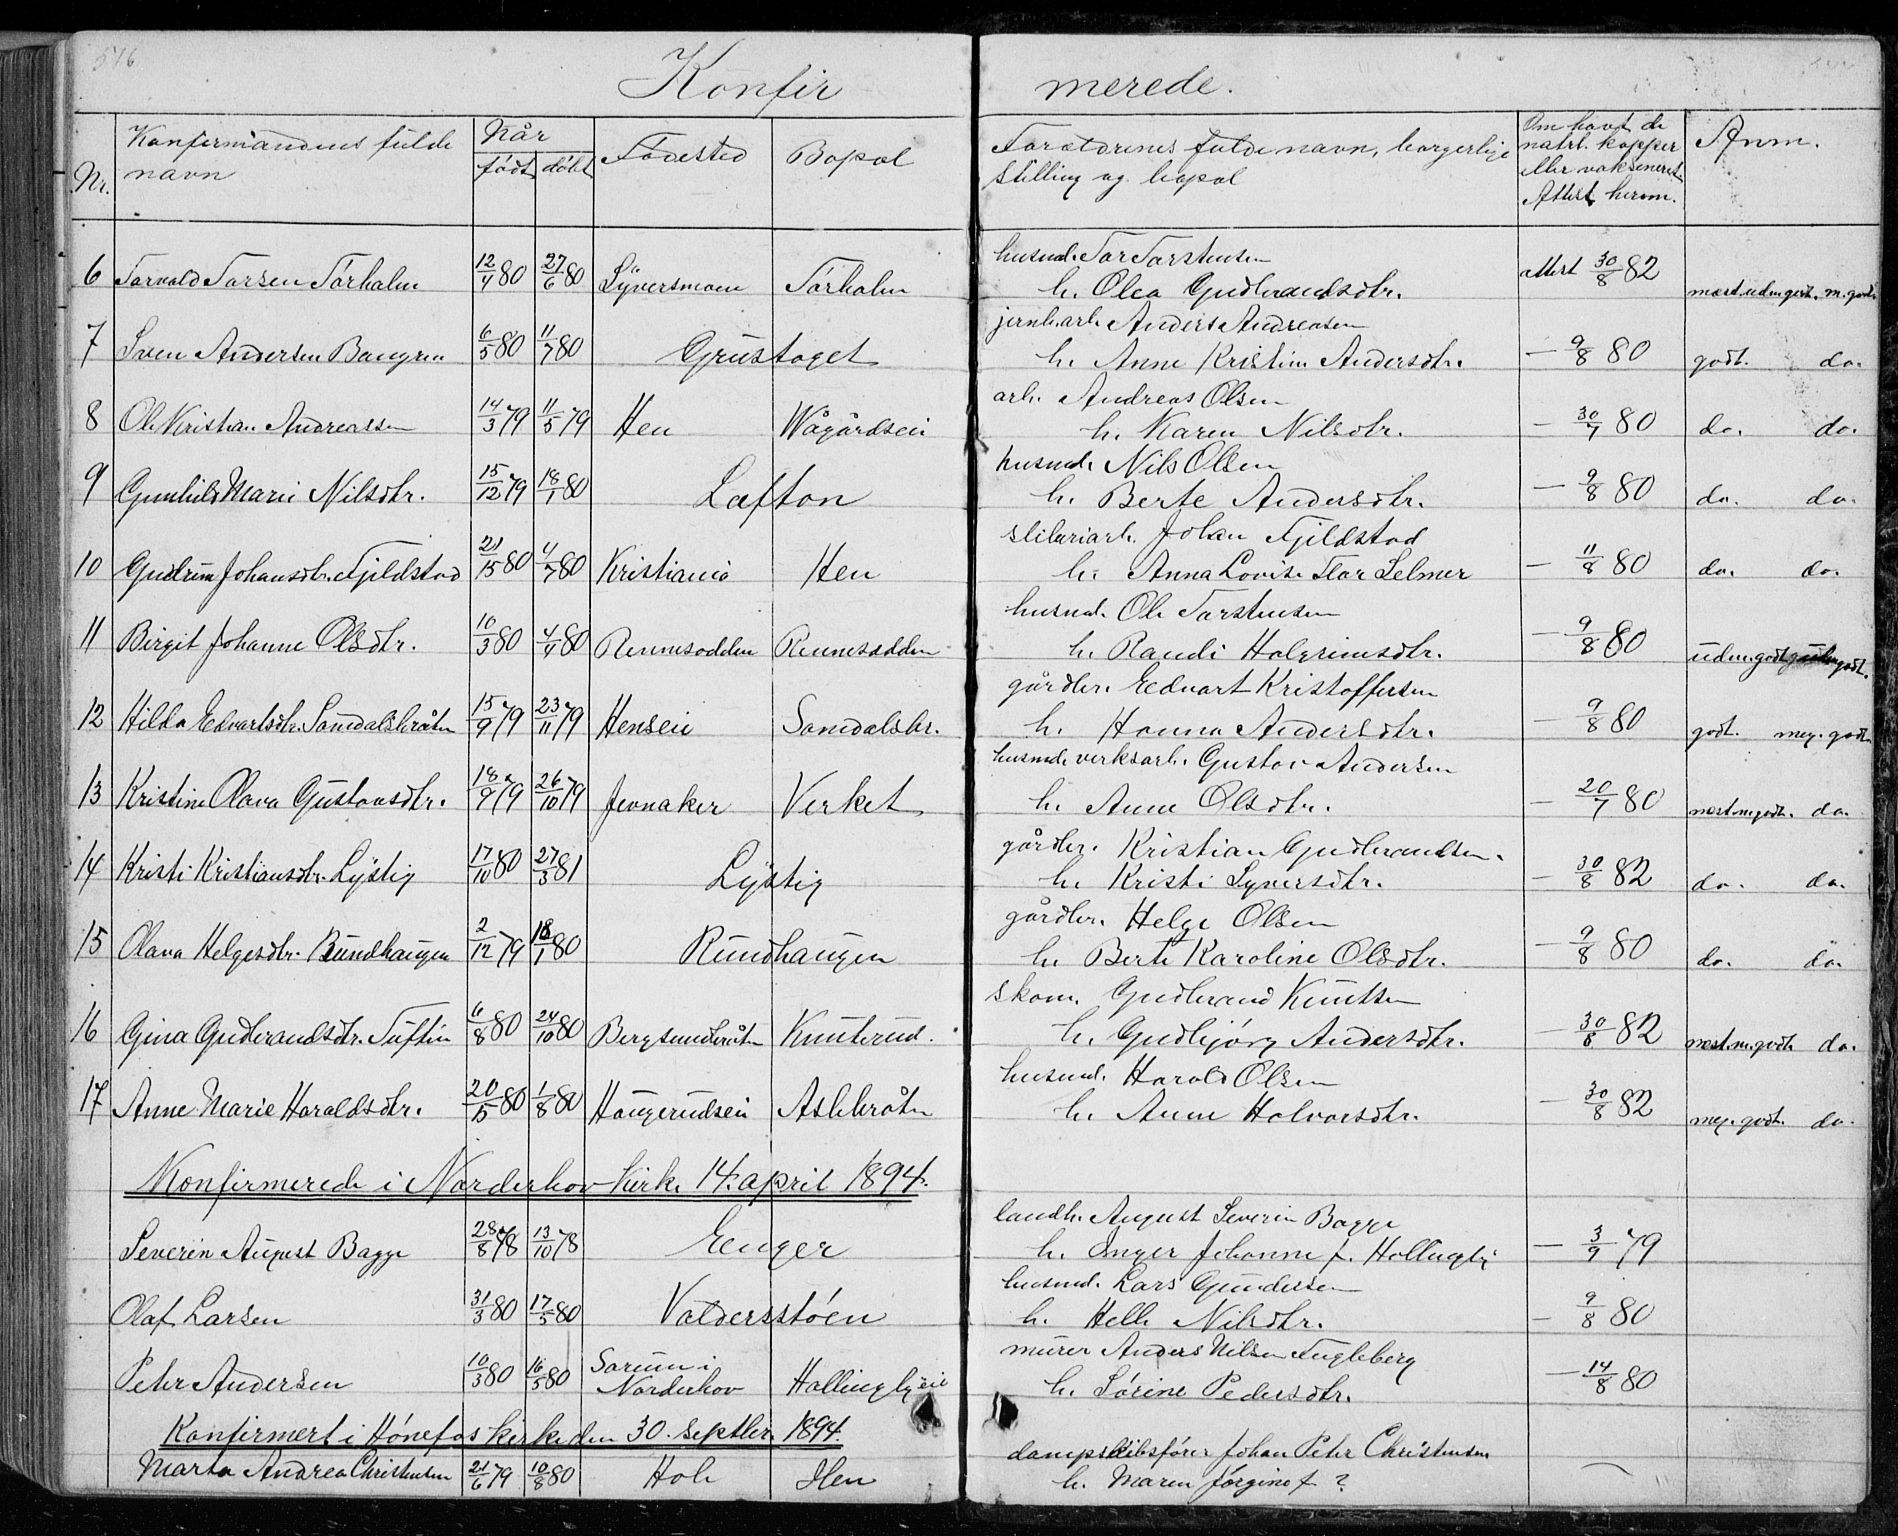 576
Konfirmerede.
Nr. Konfirmandens fulde navn Når født døbt Fødested Bopæl Forældrenes fulde navn, borgerlige stilling og bopæl Om havt de natrl. kopper eller vaksineret. Attest herom. Anm.
husmd. Tor Torstensen
6 Torvald Torsen Tørholm 12/4 80 27/6 80 Syversmoen Tørholm h. Olea Gudbrandsdtr. attest 30/8 82 mest. uden godt. m. godt.
jernb.arb. Anders Andreasen
7 Sven Andersen Bangren 6/5 80 11/7 80 Grustaget h. Anne Kristine Andersdtr. — 9/8 80 godt. do.
arb. Andreas Olsen
8 Ole Kristian Andreassen 14/3 79 11/5 79 Hen Wågårdseie h. Karen Nilsdtr. — 30/7 80 do. do.
husmd. Nils Olsen
9 Gunhild Marie Nilsdtr. 15/12 79 18/1 80 Lafton h. Berte Andersdtr. — 9/8 80 do. do.
sliberiarb. Johan Fjeldstad
10 Gudrun Johansdtr. Fjeldstad 21/15 80 4/7 80 Kristiania Hen h. Anna Lovise Flor Selmer — 11/8 80 do. do.
husmd. Ole Torstensen
11 Birgit Johanne Olsdtr. 10/3 80 4/4 80 Rennesodden Rennesodden h. Randi Halgrimsdtr. — 9/8 80 uden godt. godt.
gårdbr. Edvart Kristoffersen
12 Hilda Edvartsdtr. Samdalsbråten 15/9 79 23/11 79 Henseie Samdalsbr. h. Hanna Andersdtr. — 9/8 80 godt. meg. godt.
husmd. verksarb. Gustav Andersen
13 Kristine Olava Gustavsdtr. 18/9 79 26/10 79 Jevnaker Verket h. Anne Olsdtr. — 20/7 80 mest. m. godt. do.
gårdbr. Kristian Gudbrandsen.
14 Kristi Kristiansdtr. Lystig 17/10 80 27/3 81 Lystig h. Kristi Syversdtr. — 30/8 82 do. do.
gårdbr. Helge Olsen
15 Olava Helgesdtr. Rundhaugen 2/12 79 18/1 80 Rundhaugen h. Berte Karoline Olsdtr. — 9/8 80 do. do.
skom. Gudbrand Knutsen
16 Gina Gudbrandsdtr. Tuftin 6/8 80 24/10 80 Bergsundbråten Knuterud. h. Gudbjørg Andersdtr. — 30/8 82 mest. m. godt. do.
husmd. Harald Olsen
17 Anne Marie Haraldsdtr. 20/5 80 1/8 80 Haugerudseie Askbråten h. Anne Halvorsdtr. — 30/8 82 meg. godt. do.
Konfirmerede i Norderhov kirke 14. april 1894.
landh. August Severin Bagge
Severin August Bagge 28/8 78 13/10 78 Eenger h. Inger Johanne f. Hallingby — 3/9 79
husmd. Lars Gundersen
Olaf Larsen 31/3 80 17/5 80 Valdersstøen h. Helle Nilsdtr. — 9/8 80
murer Anders Nilsen Fugleberg
Peter Andersen 10/3 80 16/5 80 Sørum i Norderhov Hallingbyeie h. Sørine Pedersdtr. — 14/8 80
Konfirmert i Hønefos kirke den 30. septbr. 1894.
dampskibsfører Johan Peter Christensen
Marta Andrea Christensen 21/6 79 10/8 80 Hole Hen h. Maren Jørgine f. ? —